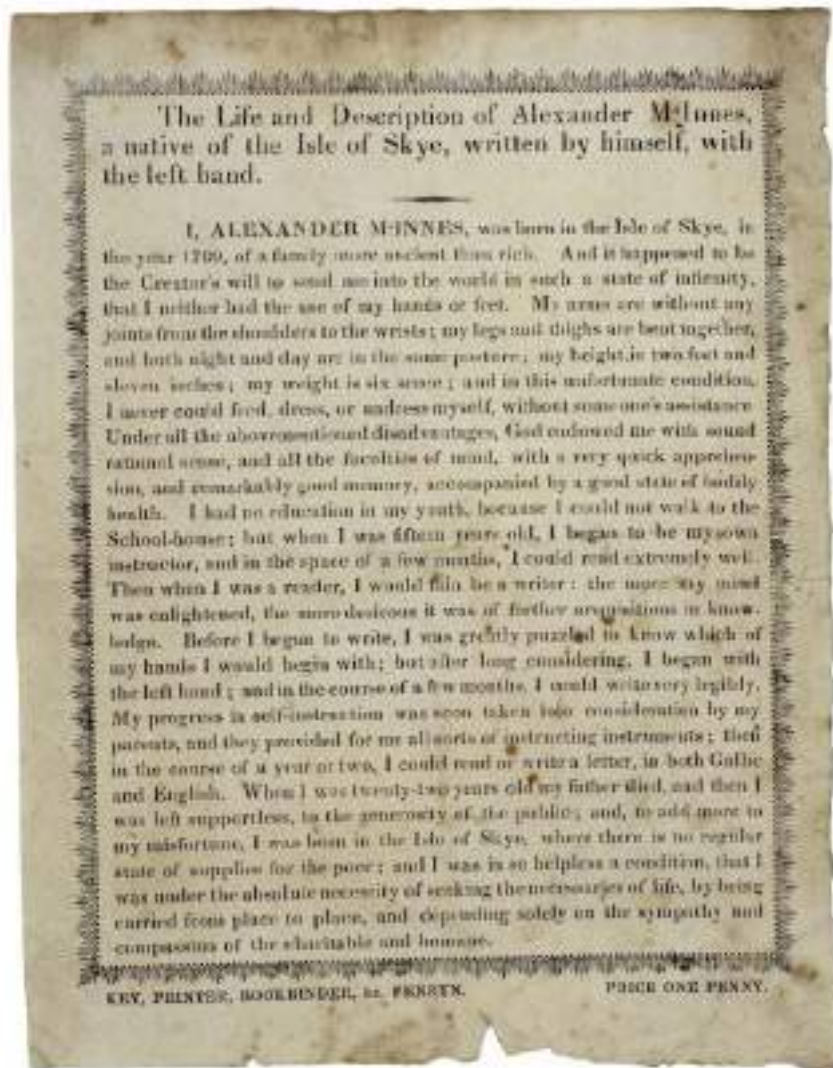 The Life and Description of Alexander McInnes,
a native of the Isle of Skye, written by himself, with
the left hand.
I, ALEXANDER McINNES, was born in the Isle of Skye, in
the year 1799, of a family more ancient than rich. And it happened to be
the Creator's will to send me into the world in such a state of infirmity,
that I neither had the use of my hands or feet. My arms are without any
joints from the shoulders to the wrists; my legs and thighs are bent together,
and both night and day are in the same posture; my height is two feet and
eleven inches; my weight is six stone; and in this unfortunate condition,
I never could feed, dress, or undress myself, without some one's assistance
Under all the abovementioned disadvantages, God endowed me with sound
rational sense, and all the faculties of mind, with a very quick apprehen-
sion, and remarkably good memory, accompanied by a good state of bodily
health. I had no education in my youth, because I could not walk to the
School-house; but when I was fifteen years old, I began to be my own
instructor, and in the space of a few months, I could read extremely well.
Then when I was a reader, I would fain be a writer: the more my mind
was enlightened, the more desirous it was of further acquisitions in know-
ledge. Before I began to write, I was greatly puzzled to know which of
my hands I would begin with; but after long considering, I began with
the left hand; and in the course of a few months, I could write very legibly.
My progress in self-instruction was soon taken into consideration by my
parents, and they provided for me all sorts of instructing instruments; then
in the course of a year or two, I could read or write a letter, in both Gaelic
and English. When I was twenty-two years old my father died, and then I
was left supportless, to the generosity of the public; and, to add more to
my misfortune, I was born in the Isle of Skye, where there is no regular
state of supplies for the poor; and I was in so helpless a condition, that I
was under the absolute necessity of seeking the necessaries of life, by being
carried from place to place, and depending solely on the sympathy and
compassion of the charitable and humane.
KEY, PRINTER, BOOKBINDER, &c. PENRYN. PRICE ONE PENNY.